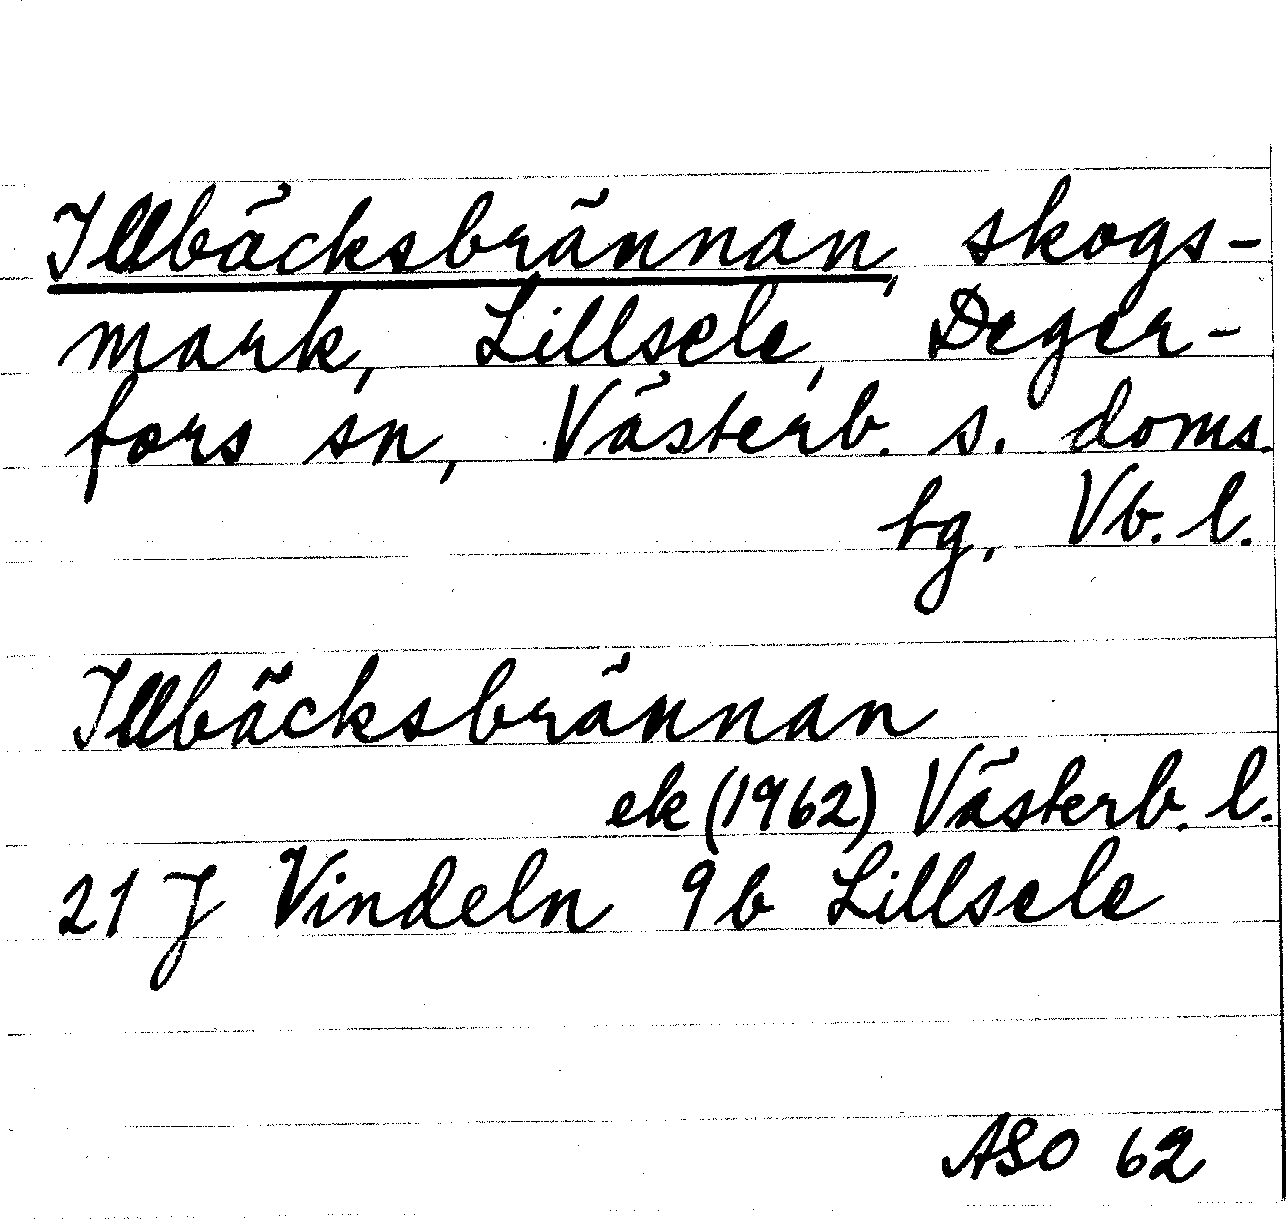 Illbäcksbrännan, skogs-
mark, Lillsele, Deger-
fors sn, Västerb. s. doms.
hg, Vb. l.
Illbäcksbrännan
ek (1962) Västerb. l.
21 J Vindeln 9b Lillsele
ASO 62